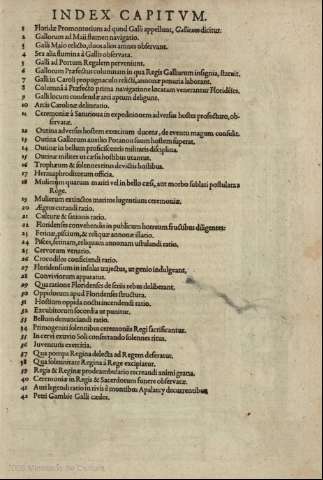 INDEX CAPITVM.
1 Floridæ Promontorium ad quod Galli appellunt, Gallicum dicitur.
2 Gallorum ad Maii flumen navigatio.
3 Galli Maio relicto, duos alios amnes observant.
4 Sex alia flumina à Gallis observata.
5 Galli ad Portum Regalem perveniunt.
6 Gallorum Præfectus columnam in qua Regis Galliarum insignia, statuit.
7 Galli in Caroli propugnaculo relicti, annonæ penuria laborant.
8 Columnam à Præfecto prima navigatione locatam venerantur Floridẽses.
9 Galli locum condendæ arci aptum deligunt.
10 Arcis Carolinæ delineatio.
11 Ceremoniæ à Saturioua in expeditionem adversus hostes profecturo, observatæ.
12 Outina adversus hostem exercitum ducens, de eventu magum consulit.
13 Outina Gallorum auxilio Potanou suum hostem superat.
14 Outinæ in bellum proficiscentis militaris disciplina.
15 Outinæ milites ut cæsis hostibus utantur.
16 Trophæum & solennes ritus devictis hostibus.
17 Hermaphroditorum officia.
18 Mulierum quarum mariti vel in bello cæsi, aut morbo sublati postulata a Rege.
19 Mulierum extinctos maritos lugentium ceremoniæ.
20 Ægros curandi ratio.
21 Culturæ & sationis ratio.
22 Floridenses convehendis in publicum horreum fructibus diligentes:
23 Ferinæ, piscium, & reliquæ annonæ illatio.
24 Pisces, ferinam, reliquam annonam ustulandi ratio.
25 Cervorum venatio.
26 Crocodilos conficiendi ratio.
27 Floridensium in insulas trajectus, ut genio indulgeant,
28 Conviviorum apparatus.
29 Qua ratione Floridenses de seriis rebus deliberant.
30 Oppidorum apud Floridenses structura.
31 Hostium oppida noctu incendendi ratio.
32 Excubitorum socordia ut punitur.
33 Bellum denunciandi ratio.
34 Primogeniti solennibus ceremoniis Regi sacrificantur.
35 In cervi exuvio Soli consecrando solennes ritus.
36 Iuventutis exercitia.
37 Qua pompa Regina delecta ad Regem deferatur.
38 Qua solennitate Regina à Rege excipiatur.
39 Regis & Reginæ prodeambulatio recreandi animi gratia.
40 Ceremoniæ in Regis & Sacerdotum funere observatæ.
41 Auri legendi ratio in rivis è montibus Apalatcy decurrentibus
42 Petri Gambie Galli cædes.